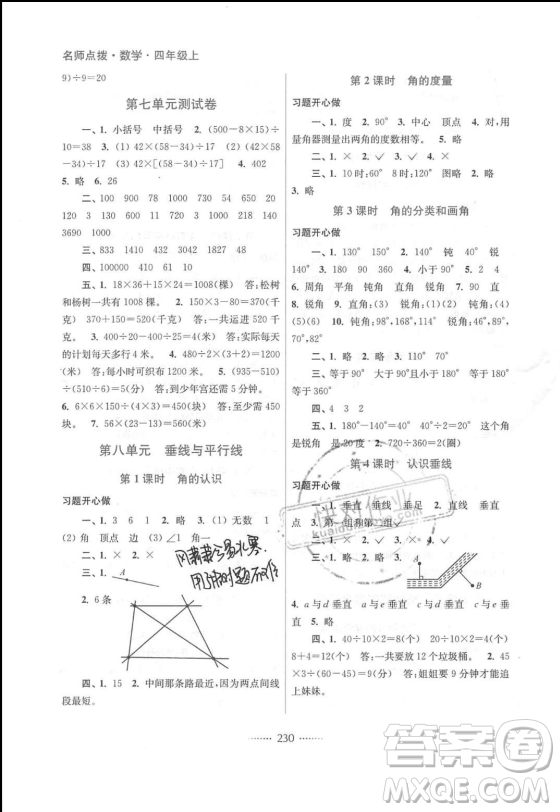 名师点拨·数学·四年级上
9)÷9=20
第七单元测试卷
一、1. 小括号 中括号 2. (500-8×15)÷
10=38 3. (1) 42×(58-34)÷17 (2) (42×58
-34)÷17 (3) 42×[(58-34)÷17] 4. 402
5. 略 6. 26
二、100 900 78 1000 1000 290
7530 60 150 30 240 300 240 342
3690
三、833 1410 432 3043 1240 1650
四、100000 410 10
五、1. 18×36+15×24=1008(棵) 答:松树
和杨树一共有 1008 棵。 2. 150×3-80=370(千
克) 370+150=520(千克) 答:一共重 520 千
克。 3. 400÷20-400÷25=4(米) 答:实际每天
的计划每天多行 4 米。 4. 400÷2+1200÷2=800
(米) 答:每小时织布 800 米。 5. (935-510)
÷(635-510)÷5=5(分) 答:到少年宫还需 5 分钟。
6. 6×6×150÷(3×4)=450(块) 答:需要 450
块。 7. 56×(23-3)÷2=560(米)
第八单元 垂线与平行线
第 1 课时 角的认识
习题开心做
一、1. 3 6 1 2. 略 3. (1) 无数 1
(2) 角 顶点 边 (3)∠1 角一
二、1. × 2. × 3. ×
三、1.
A
2. 6 条
四、1. 15 2. 中间那条路最近,因为两点间线
段最短。
第 2 课时 角的度量
习题开心做
一、1. 度 2. 90° 3. 中心 顶点 4. 对,用
量角器测量出两角的度数相等。 5. 略
二、1. × 2. × 3. ✓ 4. ×
三、1. 10时:60° 8时:120° 图略 2. 略
3. 略
第 3 课时 角的分类和画角
习题开心做
一、1. 60° 2. 120° 90° 钝 角 锐 角
90° 3. 180 90 360 4. 小于 90° 5. 2 4
6. 周角 平角 钝角 直角 锐角 7. 90 直
8. 锐角:(2) 直角:(3) 钝角:(1)(4)
(5)(6) 10. 钝角:98°,168°,114° 锐角:46°,89°,
70°,54° 直角:90°
二、1. 略 2. 略 3. 110° 70° 110°
三、等于 90° 大于 90°且小于 180° 等于 180°
等于 360°
四、4 3 2
五、1. 180°-140°=40° 90°-40°=50° 这个角
是锐角 是 20 度 2. 720÷360=2(圈)
第 4 课时 认识垂线
习题开心做
一、1. 垂直 垂线 垂足 2. 直 垂直 垂线
点 3. 第一组和第二组✓
二、1. × 2. × 3. × 4. ✓
三、1. 略 2. 略 3.
A
4. a与d垂直 b与d垂直 c与d垂直 a与e垂
直 5. 略
四、1. 40÷10×2=8(个) 20÷10×2=4(个)
8+4=12(个) 答:一共要放 12 个垃圾桶。 2.
45×3÷(60-45)=9(分) 答:姐姐要 9 分钟才能追
上妹妹。
快对作业
230
答案圈
MXQE.COM